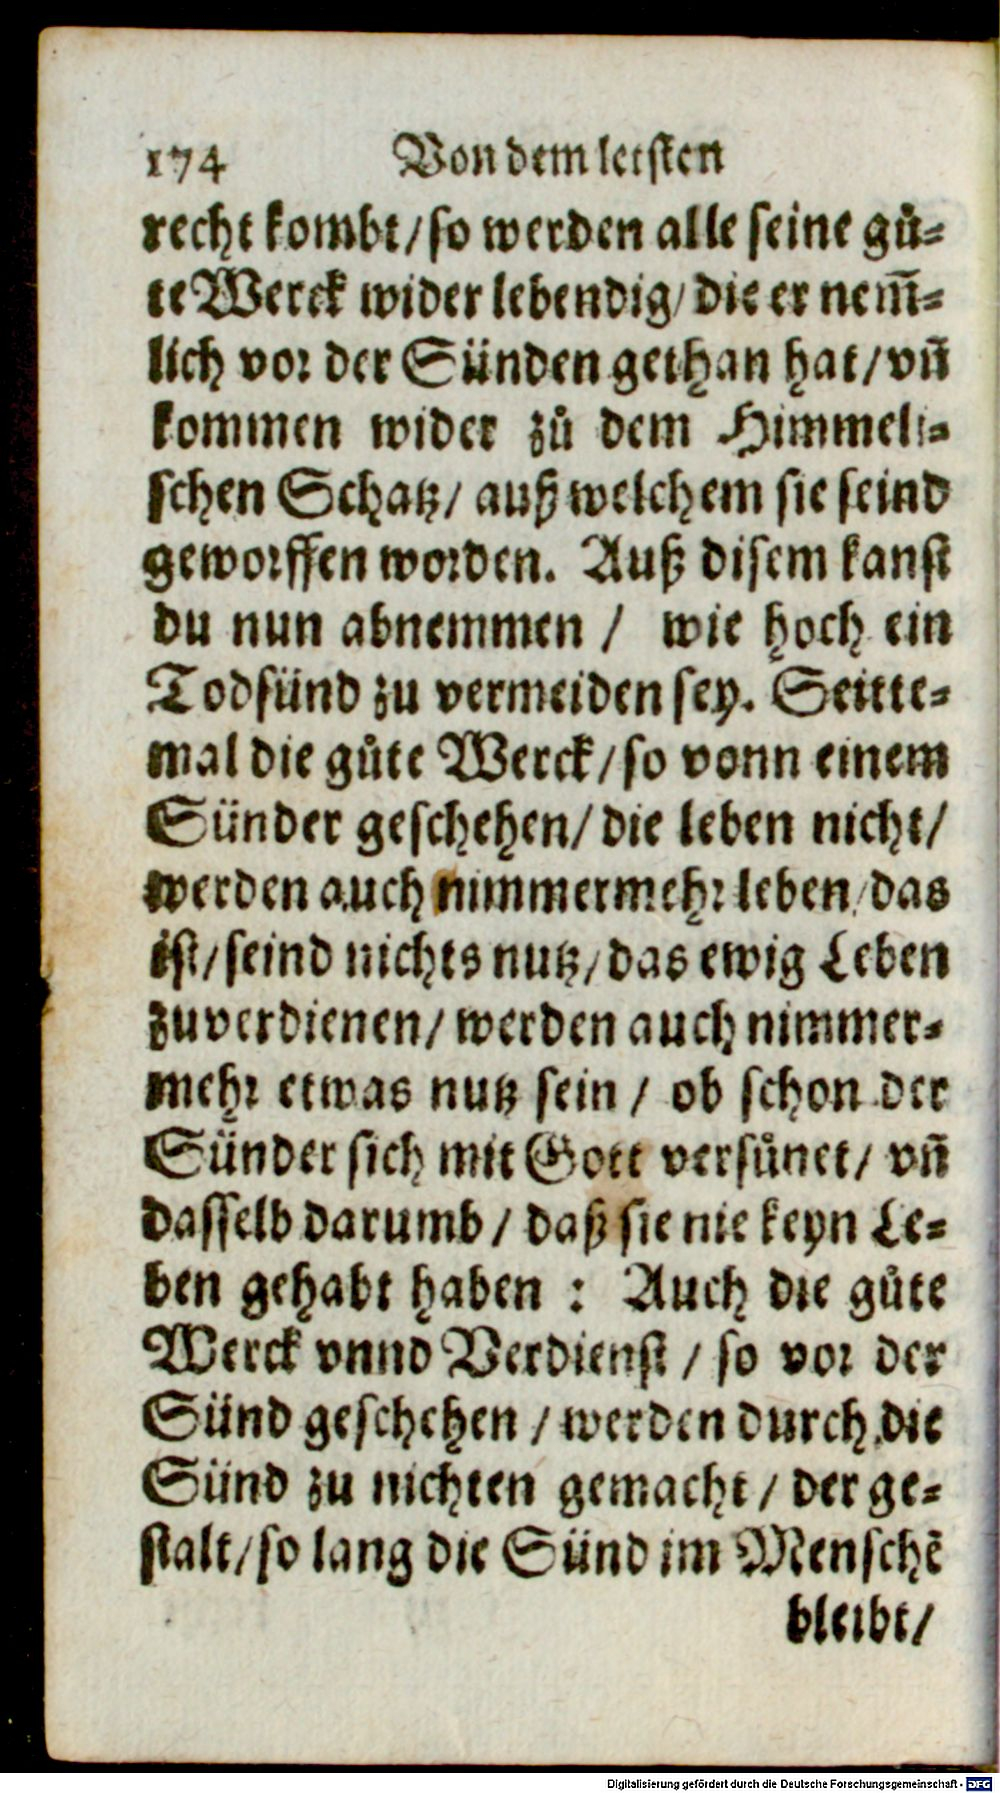 174 Von dem letsten
recht kombt/ so werden alle seine gů-
te Werck wider lebendig/ die er nem̃-
lich vor der Sünden gethan hat/ vñ
kommen wider zů dem Himmeli-
schen Schatz/ auß welchem sie seind
geworffen worden. Auß disem kanst
du nun abnemmen / wie hoch ein
Todsünd zu vermeiden sey. Seitte-
mal die gůte Werck/ so vonn einem
Sünder geschehen/ die leben nicht/
werden auch nimmermehr leben/ das
ist/ seind nichts nutz/ das ewig Leben
zuverdienen/ werden auch nimmer-
mehr etwas nutz sein / ob schon der
Sünder sich mit Gott versünet/ vñ
dasselb darumb / daß sie nie keyn Le-
ben gehabt haben : Auch die gůte
Werck vnnd Verdienst / so vor der
Sünd geschehen / werden durch die
Sünd zu nichten gemacht / der ge-
stalt/ so lang die Sünd im Menschẽ
bleibt/
Digitalisierung gefördert durch die Deutsche Forschungsgemeinschaft - DFG